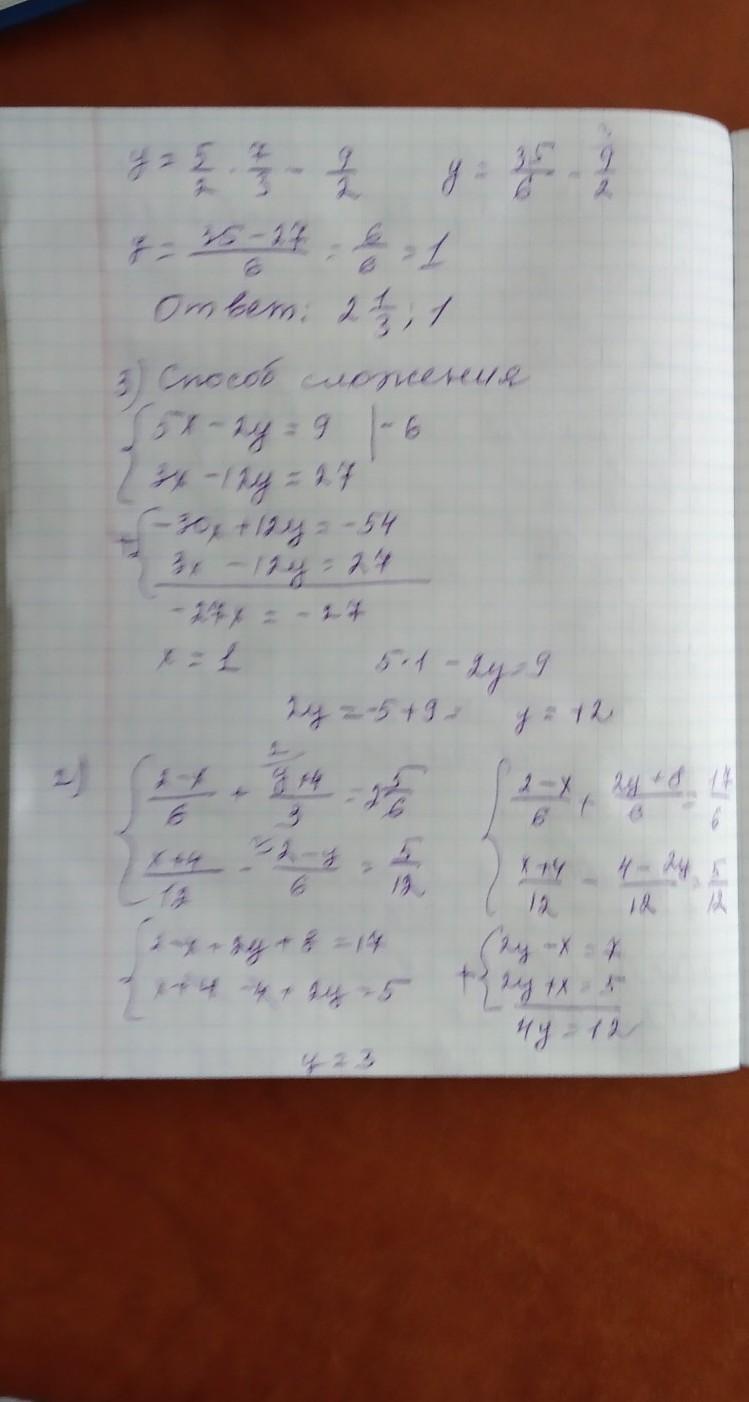 y = 5/2 · 7/3 - 9/2    y = 35/6 - 9/2
y = 35-27/6 = 6/6 = 1
Ответ: 2 1/3; 1
3) Способ сложения
{ 5x - 2y = 9 | -6
3x - 12y = 27
+{ -30x + 12y = -54
3x - 12y = 27
-27x = -27
x = 1    5·1 - 2y = 9
2y = -5+9 =    y = +2
2) { 2-x/6 + y+4/3 = 2 5/6    { 2-x/6 + 2y+8/6 = 17/6
x+4/12 - 2-y/6 = 5/12    x+4/12 - 4-2y/12 = 5/12
{ 2-x+2y+8 = 17    +{ 2y-x = 7
x+4-4+2y = 5    2y+x = 5
4y = 12
y = 3